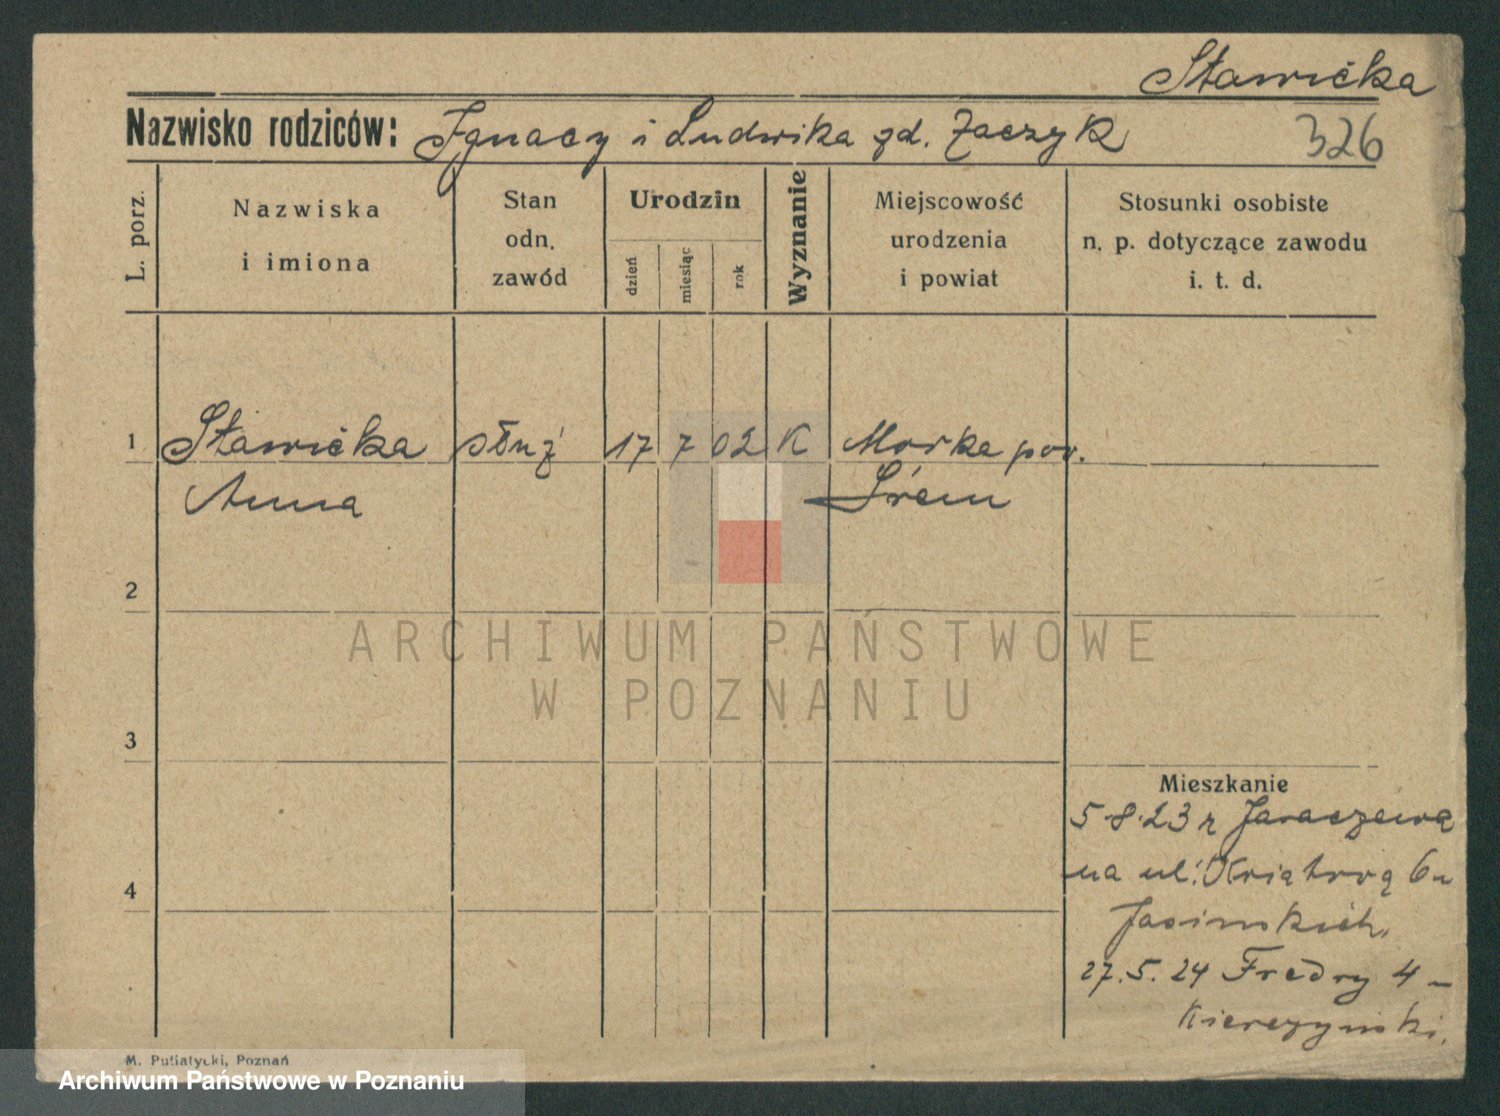 Stawicka
Nazwisko rodziców: Ignacy i Ludwika zd. Zaczyk 326
L. porz.
Nazwiska
i imiona
Stan
odn.
zawód
Urodzin
dzień
miesiąc
rok
Wyznanie
Miejscowość
urodzenia
i powiat
Stosunki osobiste
n. p. dotyczące zawodu
i. t. d.
1 Stawicka służ 17 7 02 K Morka pow.
Anna Śrem
2
ARCHIWUM PAŃSTWOWE
W POZNANIU
3
Mieszkanie
5.8.23 z Jaraczewa
na ul. 6 u
4
Jasińskich.
27.5.24 Fredry 4 –
Kierczyński.
M. Putiatycki, Poznań
Archiwum Państwowe w Poznaniu